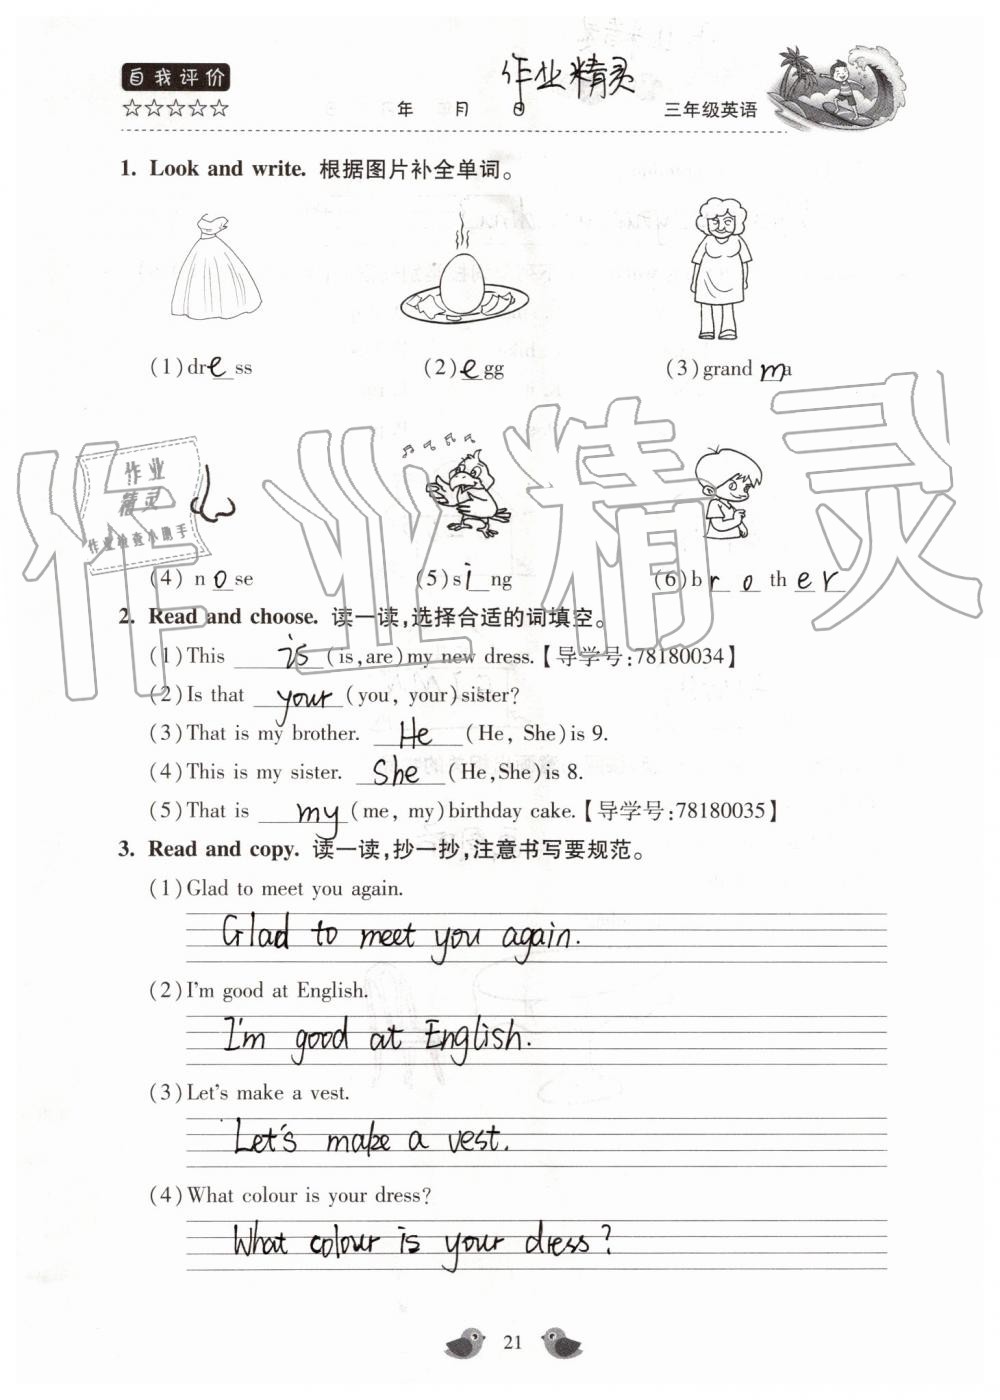 自我评价
作业精灵
☆☆☆☆☆ 年 月 日 三年级英语
1. Look and write. 根据图片补全单词。
(1)dr e ss (2) e gg (3)grand m a
作业精灵
作业
精灵
作业检查小助手
(4) n o se (5)s i ng (6)b r o th e r
2. Read and choose. 读一读,选择合适的词填空。
(1)This is (is,are)my new dress.【导学号:78180034】
(2)Is that your (you, your)sister?
(3)That is my brother. He (He, She)is 9.
(4)This is my sister. She (He,She)is 8.
(5)That is my (me, my)birthday cake.【导学号:78180035】
3. Read and copy. 读一读,抄一抄,注意书写要规范。
(1)Glad to meet you again.
Glad to meet you again.
(2)I'm good at English.
I'm good at English.
(3)Let's make a vest.
Let's make a vest.
(4)What colour is your dress?
What colour is your dress?
21